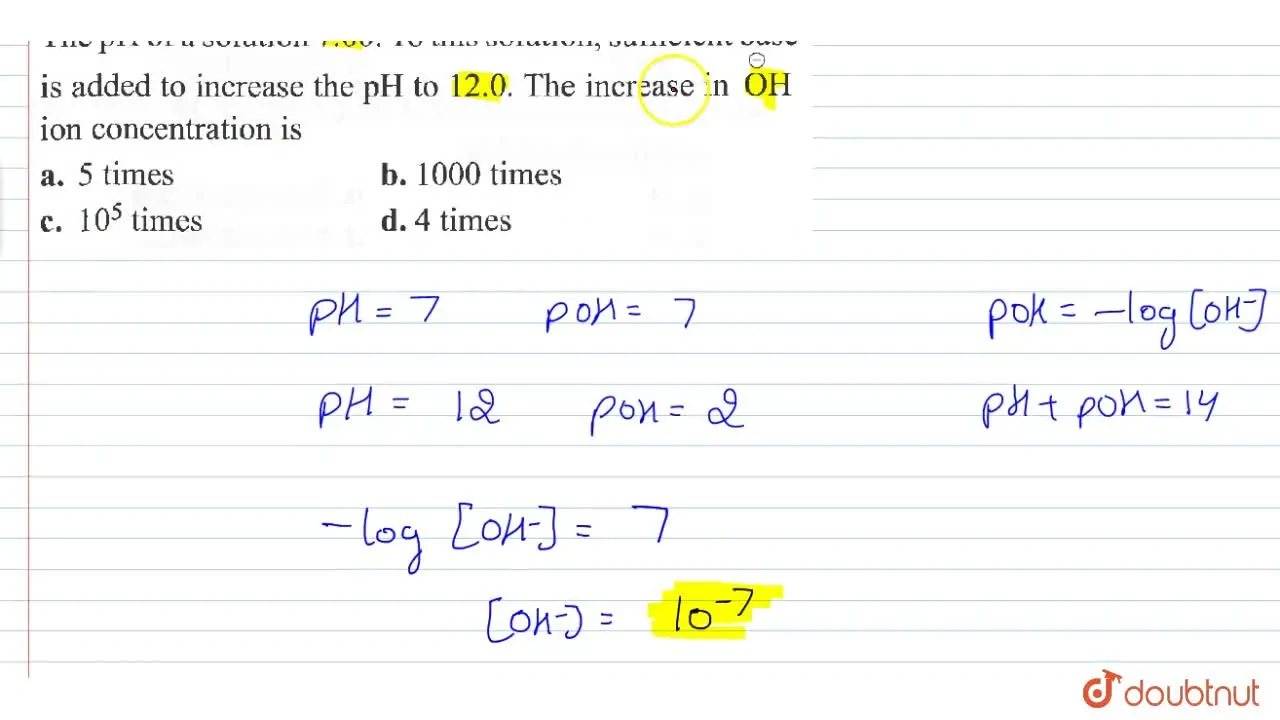 The pH of a solution 7.00. To this solution, sufficient base
is added to increase the pH to 12.0. The increase in O̊H
ion concentration is
a. 5 times b. 1000 times
c. 10⁵ times d. 4 times
pH = 7 pOH = 7 pOH = -log [OH-]
pH = 12 pOH = 2 pH + pOH = 14
-log [OH-] = 7
[OH-] = 10⁻⁷
doubtnut